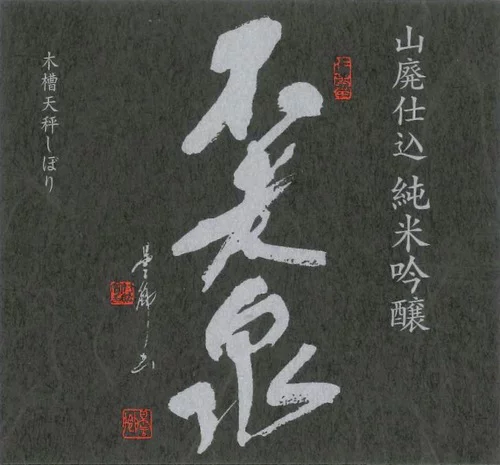 山廃仕込 純米吟醸
不老泉
木槽天秤しぼり